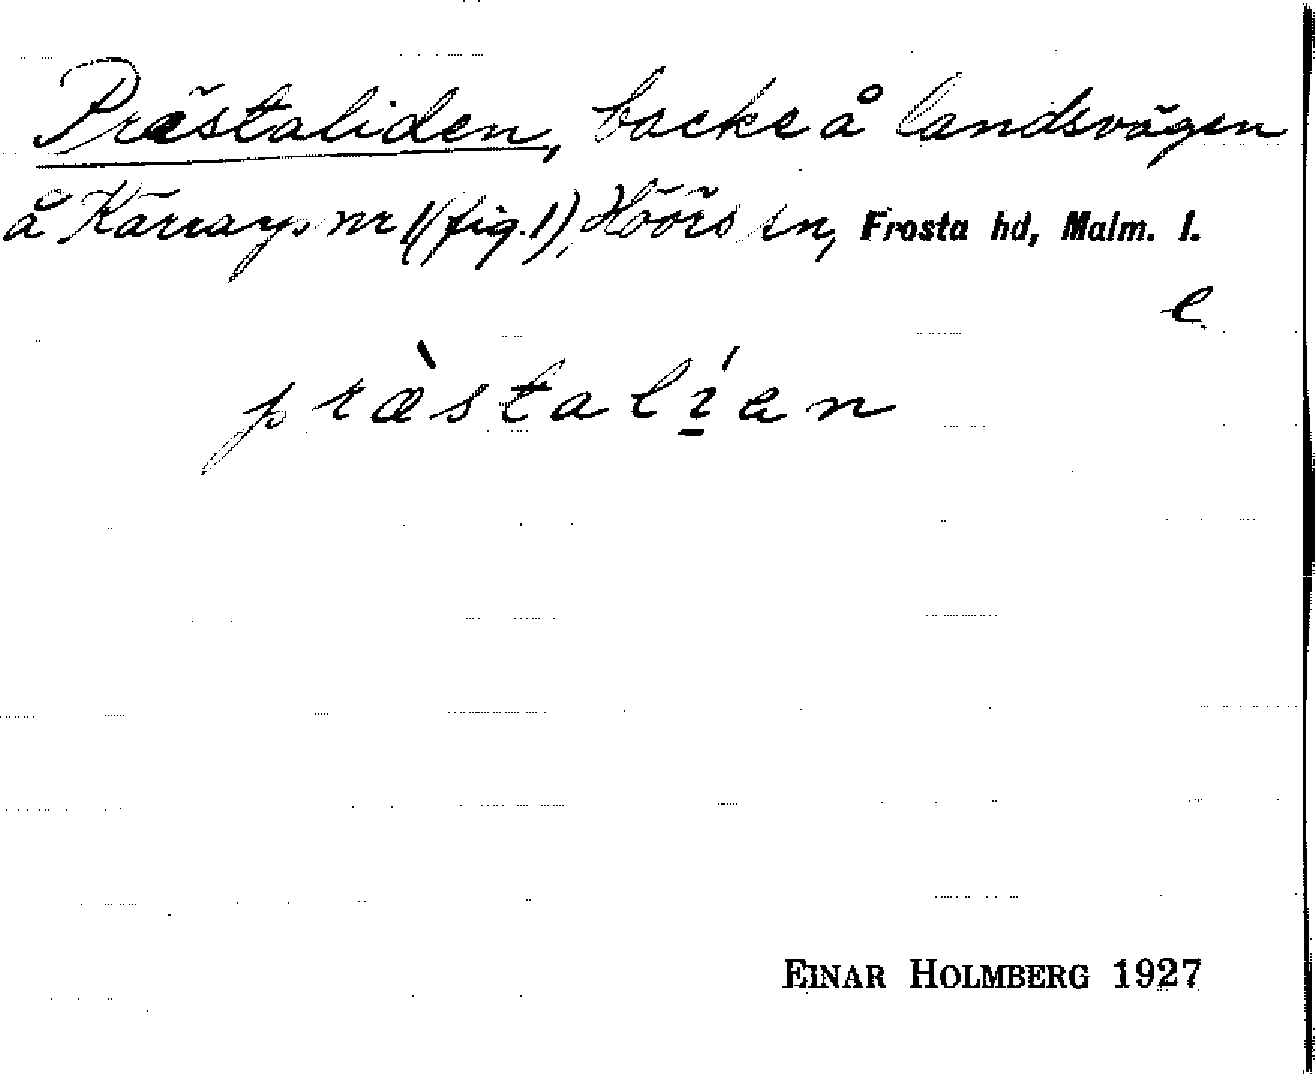 Prästaliden, backe å landsvägen
å Kärrarp nr 1 (fig. 1), Höörs sn, Frosta hd, Malm. l.
e
præ̀stalí̱an
EINAR HOLMBERG 1927